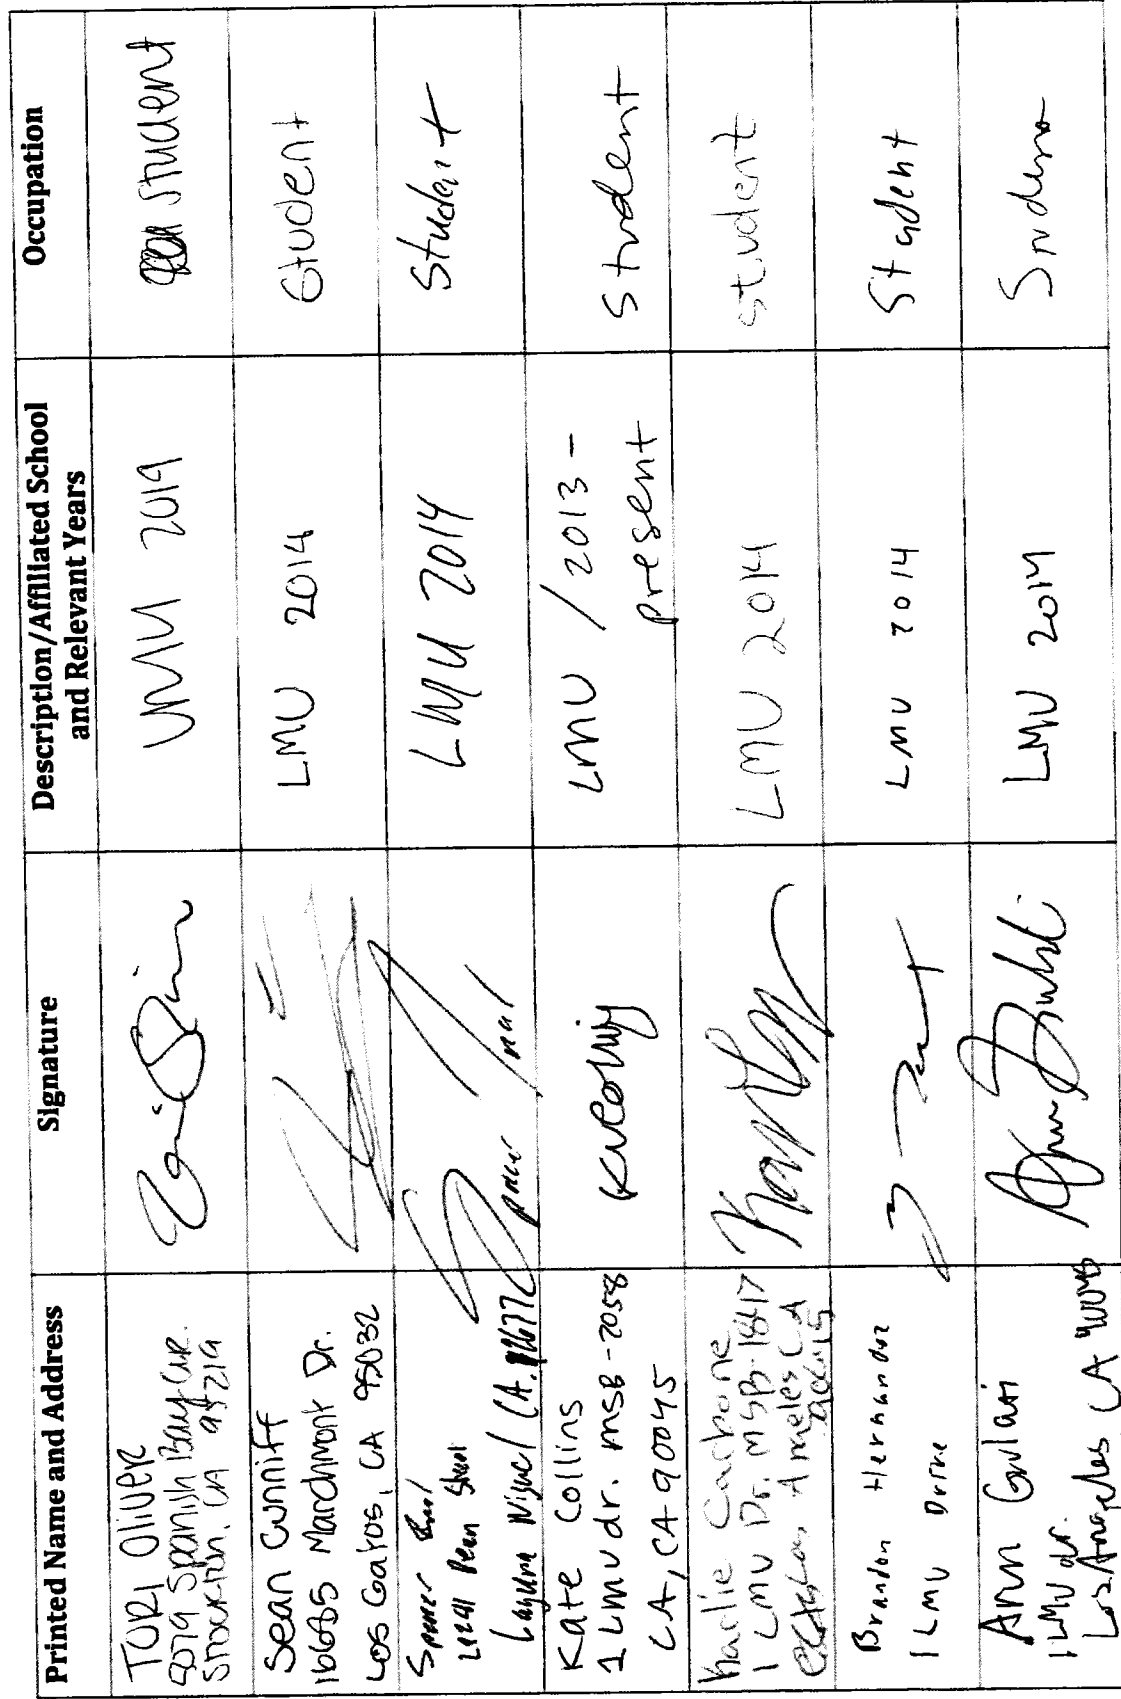 Printed Name and Address
Signature
Description/Affiliated School
and Relevant Years
Occupation
TORI Oliver
Spanish Bay Cir.
Stockton, CA 95219
LMU 2019
student
Sean Cunniff
Marchmont Dr.
Los Gatos, CA 95032
LMU 2014
Student
Laguna Niguel CA. 92677
LMU 2014
Student
Kate Collins
1 LMU dr. MSB-2058
LA, CA 90045
LMU / 2013 -
present
Student
Karlie Carbone
1 LMU Dr. MSB-18417
CA
90045
LMU 2014
student
Brandon Hernandez
1 LMU Drive
LMU 2014
Student
1 LMU dr.
Los Angeles CA
LMU 2014